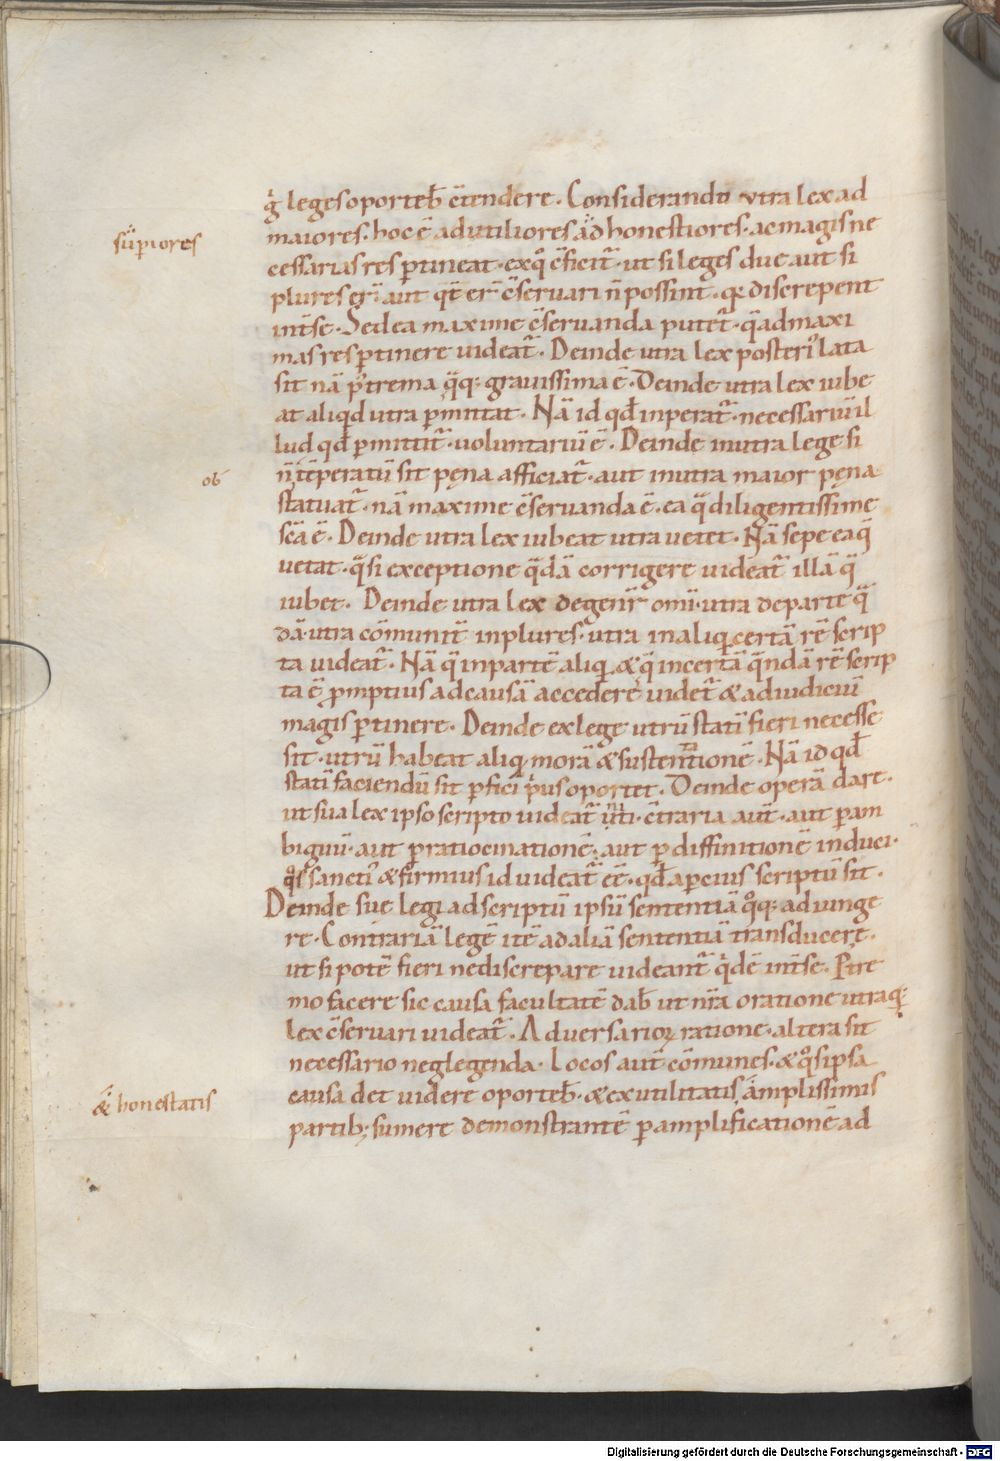 g̾ leges oporteb̄ c̄tendere. Considerandū vtra lex ad
sup̄iores
maiores. hoc ē ad utiliores ad honestiores. ac magis ne
cessarias res p̄tineat. ex q̄ c̄ficit̄. ut si leges due aut si
plures er̄ aut qt̄ er̄ c̄seruari n̄ possint. qꝫ discrepent
int̄ se. Sed ea maxime c̄seruanda putet̄. q̄ ad maxi
mas res p̄tinere uideat̄. Deinde utra lex posteri᷒ lata
sit nā p̄trema q̄qꝫ grauissima ē. Deinde utra lex iube
at aliqd utra p̄mittat. Nā id qd̄ inperat̄. necessariū il
lud qd̄ p̄mittit̄. uoluntariū ē. Deinde in utra lege si
ob
n̄ tēperatū sit pęna afficiat̄. aut in utra maior pęna
statuat̄. nā maxime c̄seruanda ē. ea q̄ diligentissime
scā ē. Deinde utra lex iubeat utra uetet. Nā sepe ea q̄
uetat. q̄si exceptione q̄dā corrigere uideat̄ illā q̄
iubet. Deinde utra lex de genr̄ omī. utra de parte q̄
dā. utra cōmunit̄ in plures. utra in aliqꝫ certā rē scrip
ta uideat̄. Nā q̄ in partē aliqꝫ & q̄ in certā q̄ndā rē scrip
ta ē p̄mptius ad causā accedere uidet̄ & ad iudiciū
magis p̄tinere. Deinde ex lege utrū statī fieri necesse
sit. utrū habeat aliqꝫ morā & sustentionē. Nā id qd̄
statī faciendū sit p̄fici p̄us oportet. Deinde operā dare.
ut sua lex ipso scripto uideat̄ niti. c̄traria aut̄. aut p̄ am
biguū. aut p̄ ratiocinationē. aut p̄ diffinitionē induci.
q̊ sancti᷒ & firmius id uideat̄ eē. qd̄ apcius scriptū sit.
Deinde sue legi ad scriptū ipsū sententiā q̊qꝫ adiunge
re. Contrariā legē itē ad aliā sententiā transducere.
ut si potē fieri ne discrepare uideant̄ q̇dē int̄ se. P̄tre
mo facere sic causa facultatē dab̄ ut nr̄a oratione utraqꝫ
lex c̄seruari uideat̄. Aduersarioꝝ ratione. altera sit
necessario neglegenda. Locos aut̄ cōmunes. & q̊s ipsa
causa det uidere oporteb̄. & ex utilitatis amplissimis
& honestatis
partibꝫ sumere demonstrantē p̄ amplificationē ad
Digitalisierung gefördert durch die Deutsche Forschungsgemeinschaft - DFG